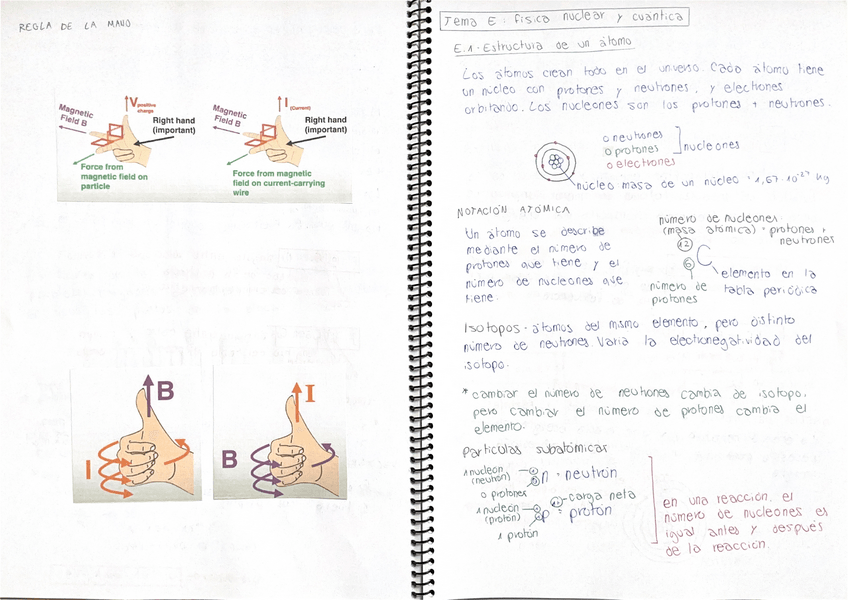 REGLA DE LA MANO
V positive charge
Magnetic Field B
Right hand (important)
Force from magnetic field on particle
I (Current)
Magnetic Field B
Right hand (important)
Force from magnetic field on current-carrying wire
B
I
I
B
Tema E: física nuclear y cuántica
E.1 - Estructura de un átomo
Los átomos crean todo en el universo. Cada átomo tiene
un núcleo con protones y neutrones, y electrones
orbitando. Los nucleones son los protones + neutrones.
o neutrones
o protones
nucleones
o electrones
núcleo masa de un núcleo: 1,67·10⁻²⁷ kg
NOTACIÓN ATÓMICA
Un átomo se describe
mediante el número de
protones que tiene y el
número de nucleones que
tiene.
número de nucleones
(masa atómica) = protones +
neutrones
12
6
C
elemento en la
tabla periódica
número de
protones
Isotopos - átomos del mismo elemento, pero distinto
número de neutrones. Varia la electronegatividad del
isotopo.
* cambiar el número de neutrones cambia de isotopo,
pero cambiar el número de protones cambia el
elemento.
Partículas subatómicas
1 nucleon
(neutrón)
n = neutrón
0 protones
carga neta
1 nucleón
(protón)
p = protón
1 protón
en una reacción, el
número de nucleones es
igual antes y después
de la reacción.